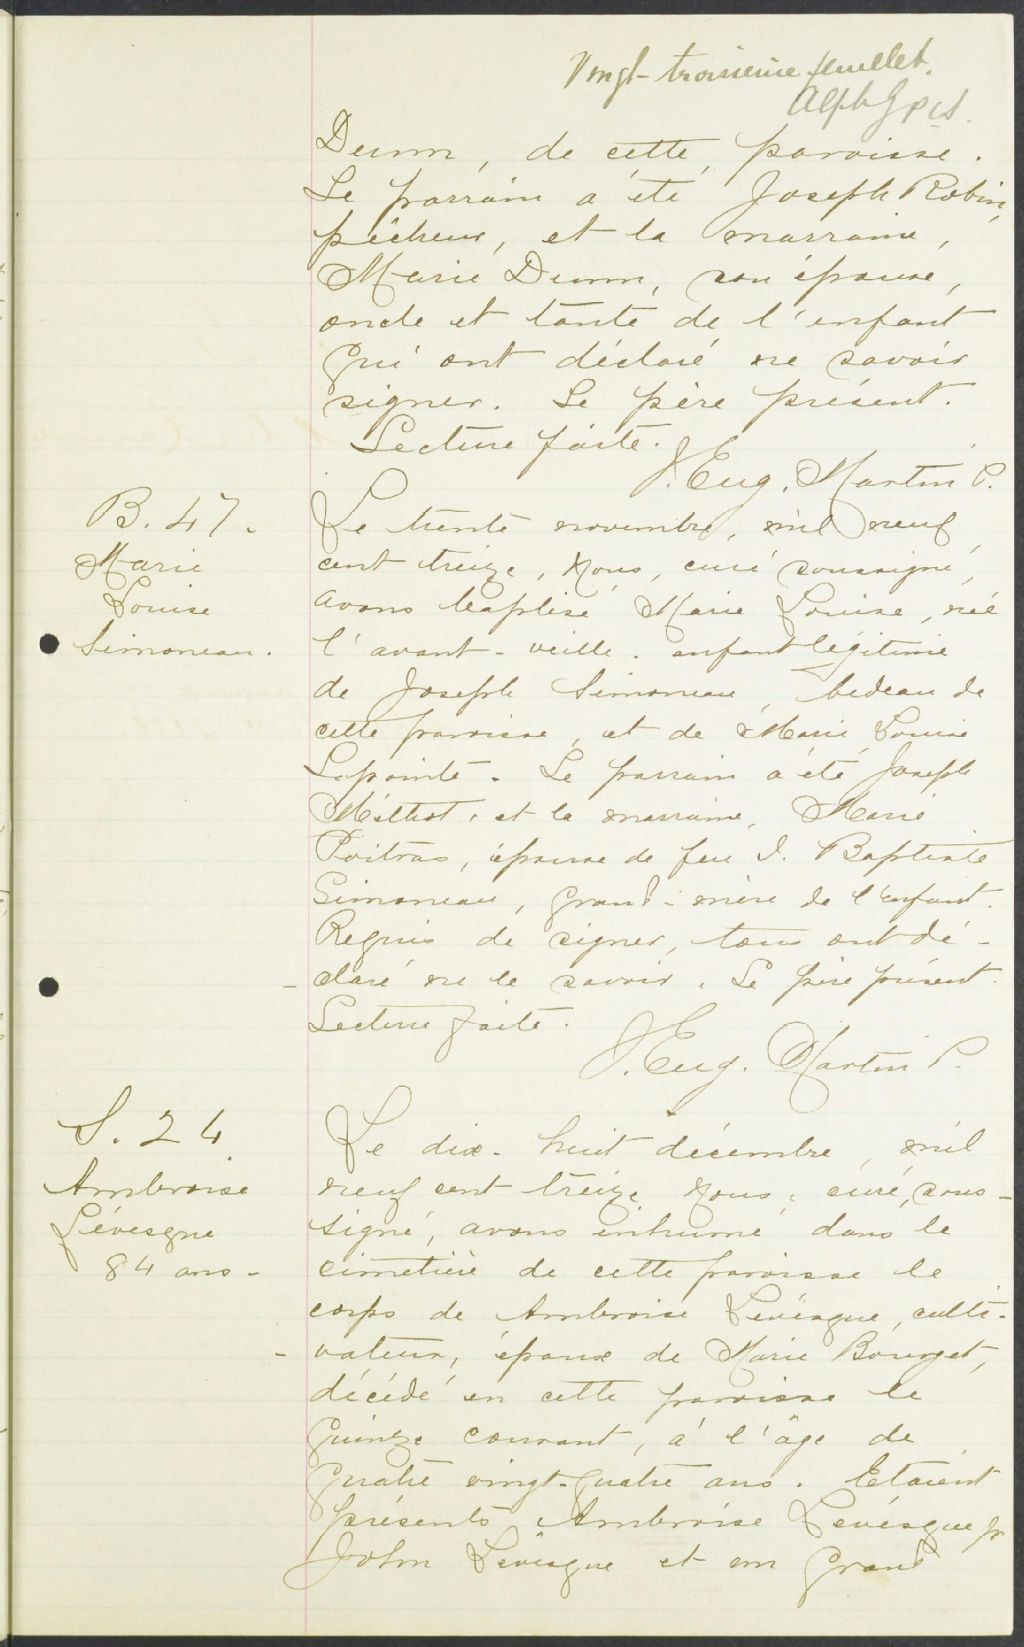 Vingt-troisième feuillet.
Alph G pst.
Dunn, de cette paroisse.
Le parrain a été Joseph Robin,
pêcheur, et la marraine,
Marie Dunn, son épouse,
oncle et tante de l'enfant
qui ont déclaré ne savoir
signer. Le père présent.
Lecture faite.
J. Eug. Martin P.
B. 47.
Marie
Louise
Simoneau.
Le trente novembre, mil neuf
cent treize, Nous, curé soussigné,
avons baptisé Marie Louise, née
l'avant-veille. enfant légitime
de Joseph Simoneau, bedeau de
cette paroisse, et de Marie Louise
Lapointe. Le parrain a été Joseph
Méthot, et la marraine, Marie
Poitras, épouse de feu J. Baptiste
Simoneau, grand-mère de l'enfant.
Requis de signer, tous ont dé-
claré ne le savoir. Le père présent.
Lecture faite.
J. Eug. Martin P.
S. 24
Ambroise
Lévesque
84 ans-
Le dix-huit décembre, mil
neuf cent treize, Nous, curé, sous-
signé, avons inhumé dans le
cimetière de cette paroisse le
corps de Ambroise Lévesque, culti-
vateur, époux de Marie Bourget,
décédé en cette paroisse le
quinze courant, à l'âge de
quatre vingt-quatre ans. Etaient
présents Ambroise Lévesque jr
John Lévesque et un grand